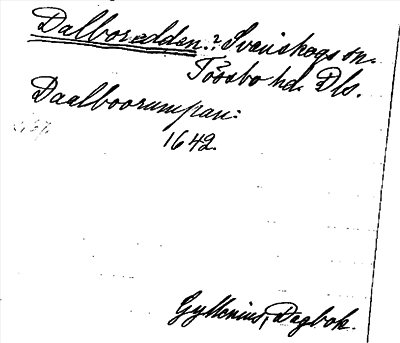 Dalboredden:? Svenskogs sn.
Tössbo hd. Dls.
Daalboorumpan:
1642.
Gyllenius, Dagbok.